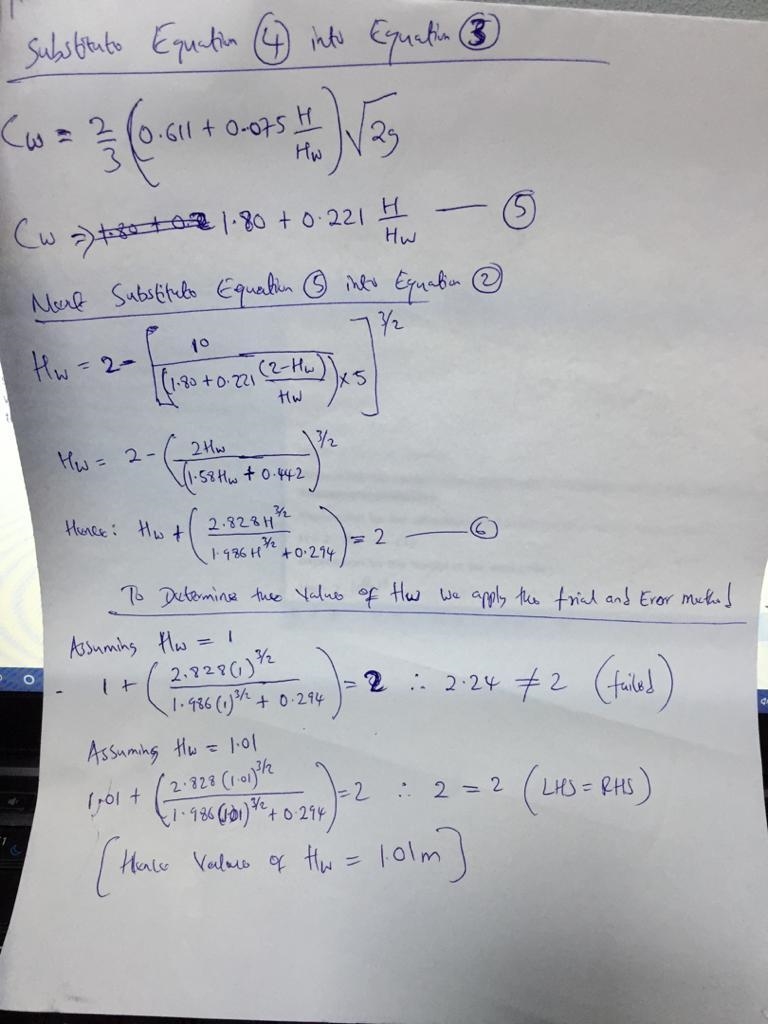 Substitute Equation ④ into Equation ③
Cw = 2/3 (0.611 + 0.075 H/Hw) √2g
Cw ⇒ 1.80 + 0.221 H/Hw — ⑤
Next Substitute Equation ⑤ into Equation ②
Hw = 2 - [10 / ((1.80 + 0.221 (2-Hw)/Hw) × 5)]^3/2
Hw = 2 - (2Hw / (1.58Hw + 0.442))^3/2
Hence: Hw + (2.828H^3/2 / 1.986H^3/2 + 0.294) = 2 — ⑥
To Determine the Value of Hw we apply the trial and Error method
Assuming Hw = 1
1 + (2.828(1)^3/2 / 1.986(1)^3/2 + 0.294) = 2 ∴ 2.24 ≠ 2 (failed)
Assuming Hw = 1.01
1.01 + (2.828(1.01)^3/2 / 1.986(1.01)^3/2 + 0.294) = 2 ∴ 2 = 2 (LHS = RHS)
[Hence Value of Hw = 1.01m]